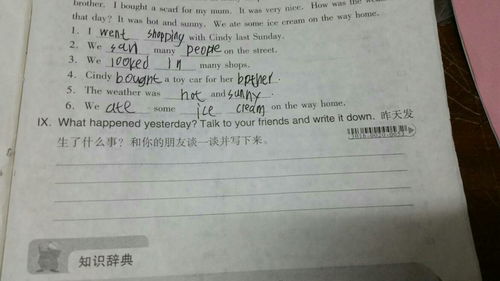 brother. I bought a scarf for my mum. It was very nice. How was the
that day? It was hot and sunny. We ate some ice cream on the way home.
1. I went shopping with Cindy last Sunday.
2. We saw many people on the street.
3. We looked in many shops.
4. Cindy bought a toy car for her brother.
5. The weather was hot and sunny.
6. We ate some ice cream on the way home.
IX. What happened yesterday? Talk to your friends and write it down. 昨天发
生了什么事？和你的朋友谈一谈并写下来。
知识辞典